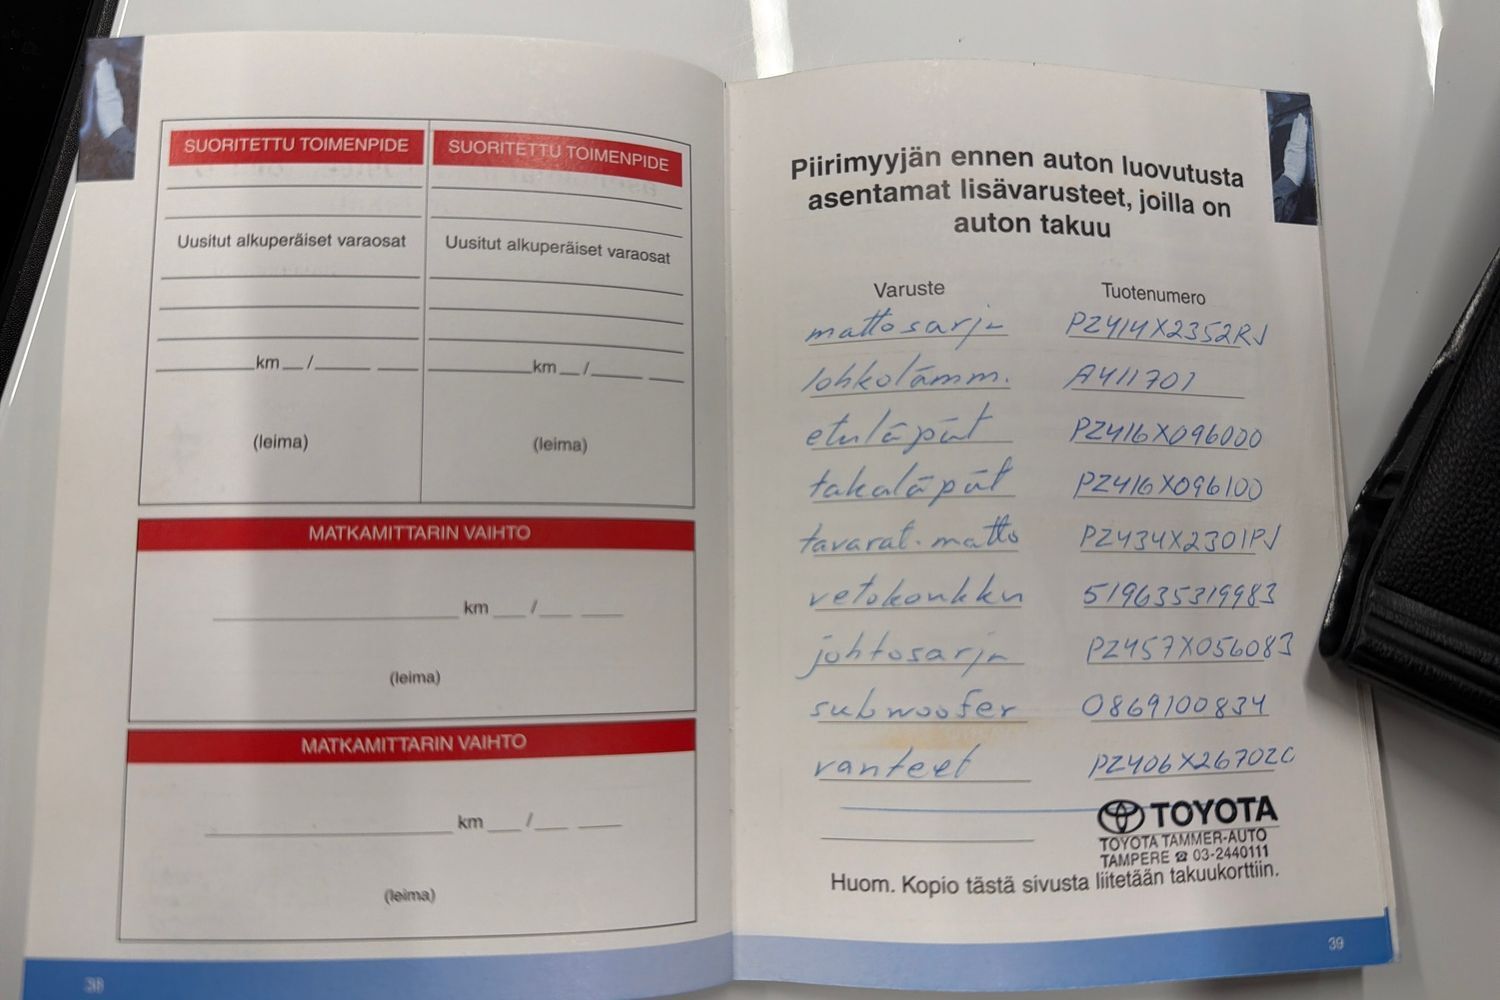 SUORITETTU TOIMENPIDE
Uusitut alkuperäiset varaosat
km /
(leima)
SUORITETTU TOIMENPIDE
Uusitut alkuperäiset varaosat
km /
(leima)
MATKAMITTARIN VAIHTO
km /
(leima)
MATKAMITTARIN VAIHTO
km /
(leima)
38
Piirimyyjän ennen auton luovutusta
asentamat lisävarusteet, joilla on
auton takuu
Varuste Tuotenumero
mattosarja PZ414X2352RJ
lohkolämm. A411701
etuläpät PZ416X096000
takaläpät PZ416X096100
tavarat. matto PZ434X2301PJ
vetokoukku 519635319983
johtosarja PZ457X056083
subwoofer 0869100834
vanteet PZ406X26702C
TOYOTA
TOYOTA TAMMER-AUTO
TAMPERE ☎ 03-2440111
Huom. Kopio tästä sivusta liitetään takuukorttiin.
39